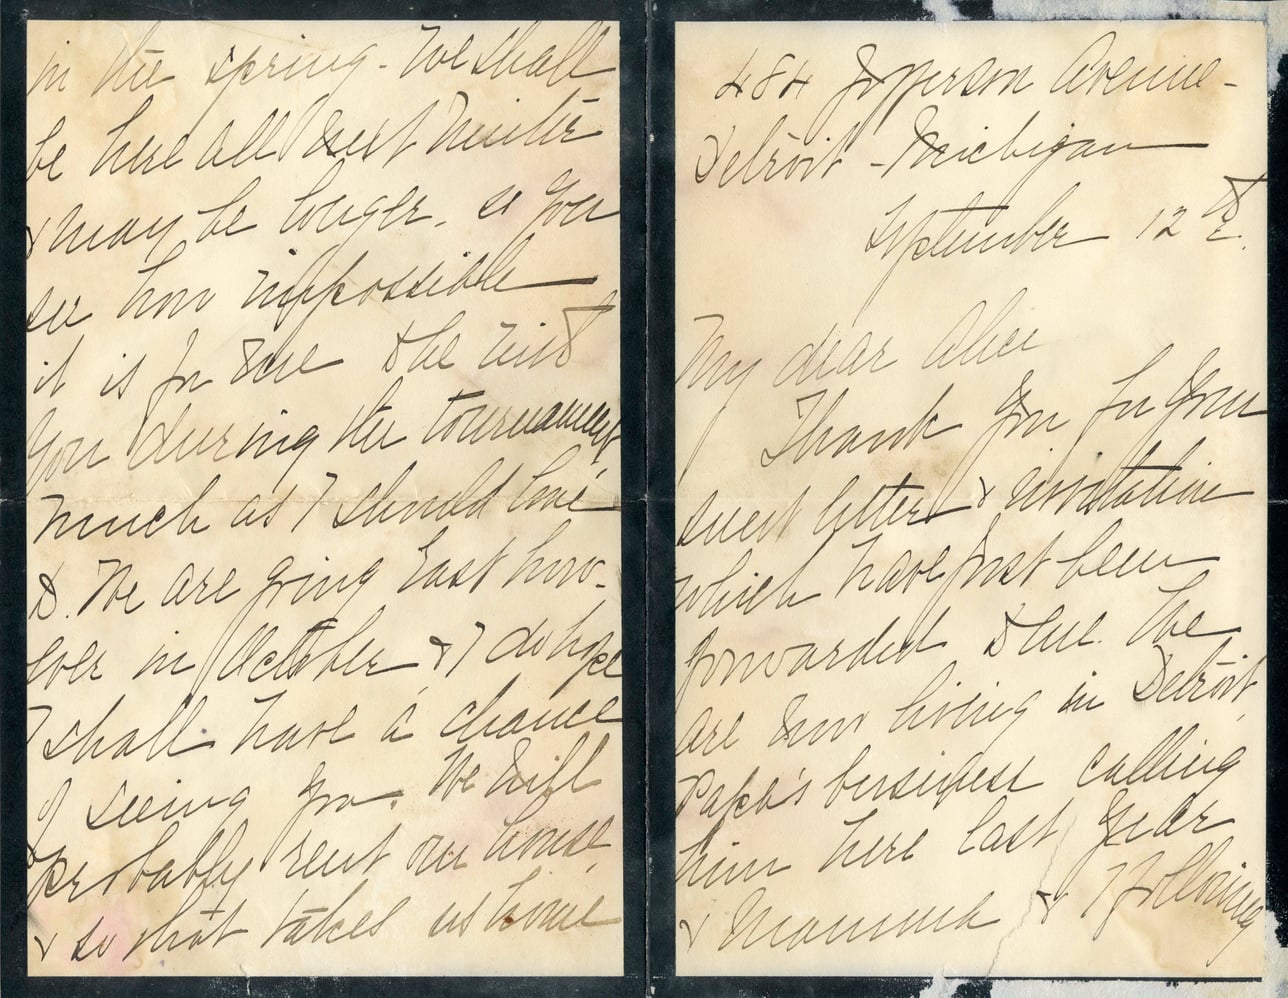 484 Jefferson Avenue -
Detroit - Michigan
September 12th
My dear Alice
Thank you for your
sweet letter & invitation
which have just been
forwarded to me. We
are now living in Detroit,
Papa's business calling
him here last year
& Mamma & I following
in the spring - We shall
be here all next winter
& may be longer. so you
see how impossible
it is for me to be with
you during the tournament,
much as I should love
to. We are going East how-
ever in October, & I do hope
I shall have a chance
of seeing you. We will
probably rent our house,
& so that takes us home